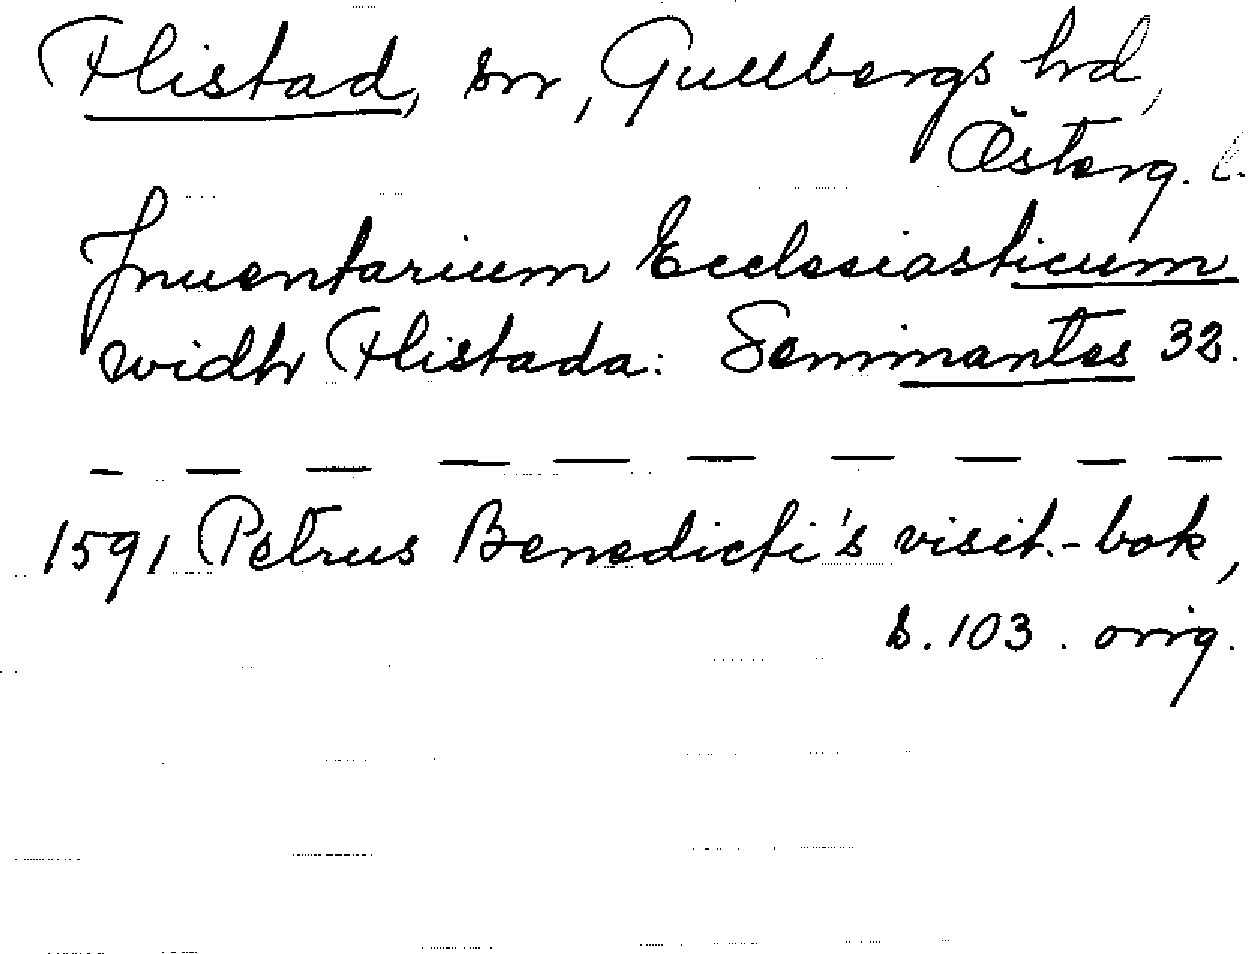 Flistad, sn, Gullbergs hd,
Österg. l.
Inuentarium Ecclesiasticum
widh Flistada: Semmantes 32.
1591 Petrus Benedicti's visit.-bok,
s. 103. orig.